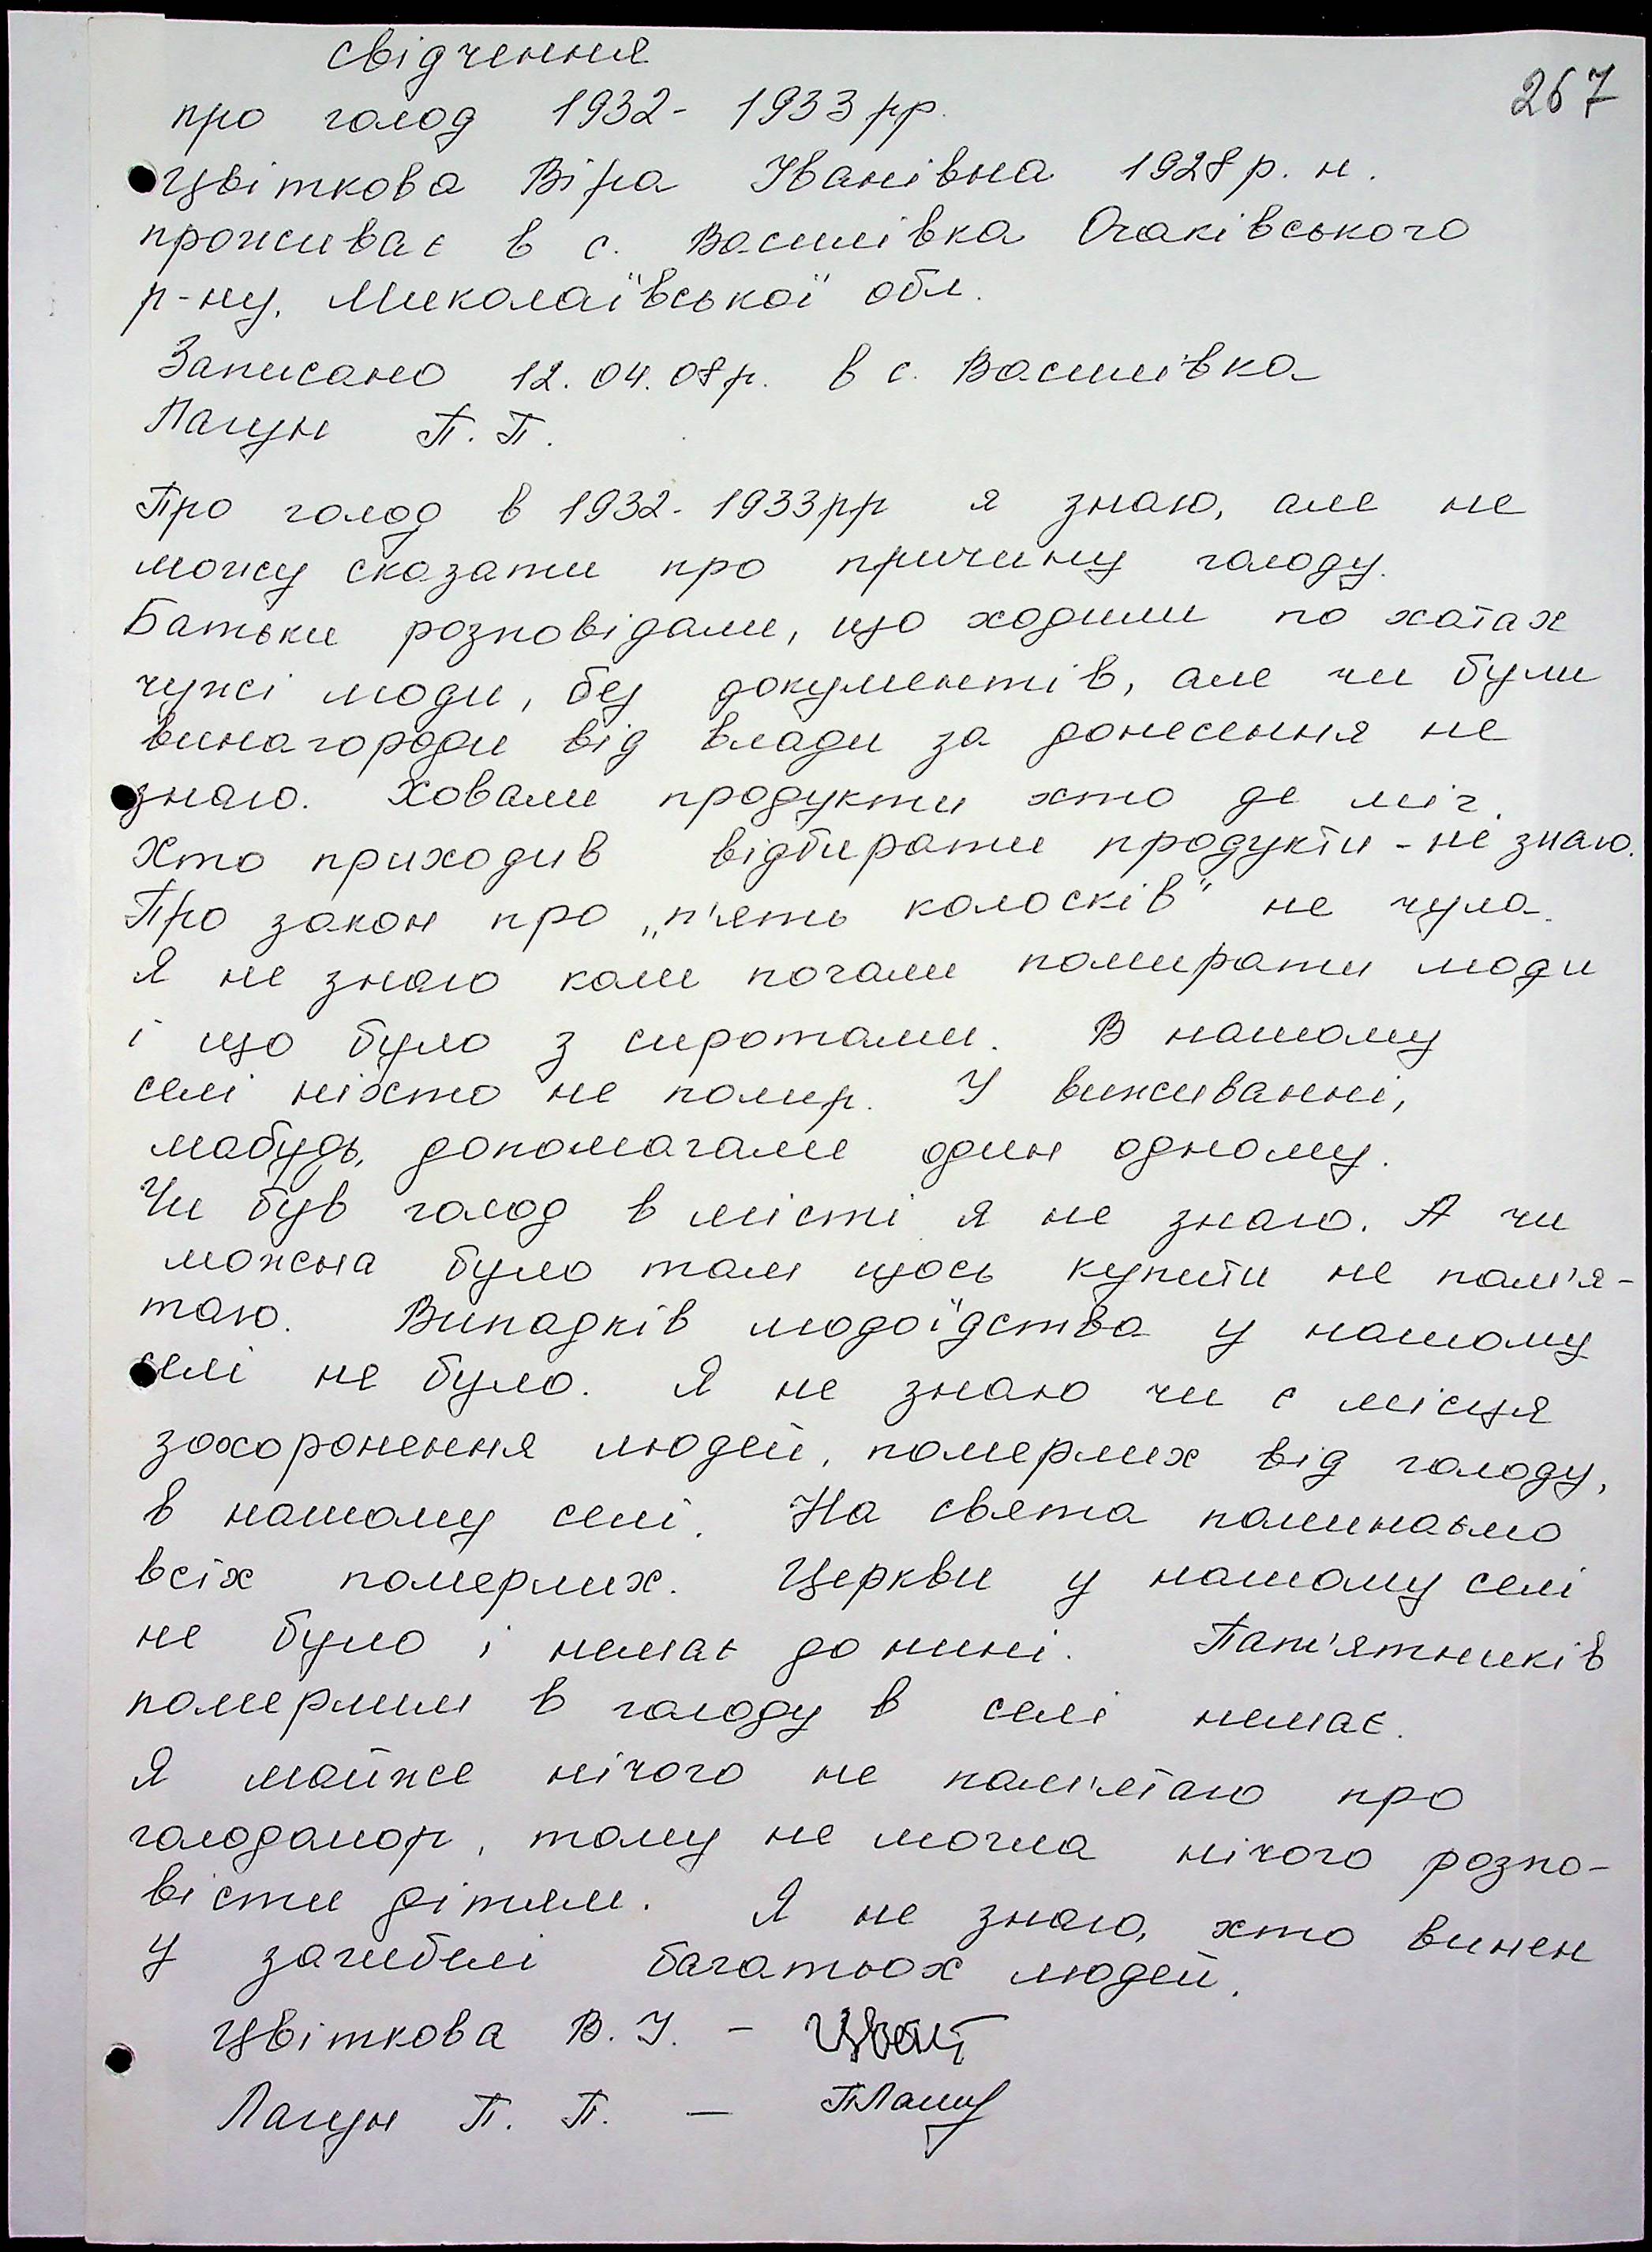 свідчення
267
про голод 1932- 1933 рр.
Цвіткова Віра Іванівна 1928 р. н.
проживає в с. Василівка Очаківського
р-ну, Миколаївської обл.
Записано 12.04.08р. в с. Василівка
П. П.
Про голод в 1932- 1933рр я знаю, але не
можу сказати про причину голоду.
Батьки розповідали, що ходили по хатах
чужі люди, без документів, але чи були
винагороди від влади за донесення не
знаю. Ховали продукти хто де міг.
Хто приходив відбирати продукти - не знаю.
Про закон про „п'ять колосків" не чула.
Я не знаю коли почали помирати люди
і що було з сиротами. В нашому
селі ніхто не помер. У виживанні,
мабудь, допомагали один одному.
Чи був голод в місті я не знаю. А чи
можна було там щось купити не пам'я-
таю. Випадків людоїдства у нашому
селі не було. Я не знаю чи є місця
захоронення людей, померлих від голоду,
в нашому селі. На свята поминаємо
всіх померлих. Церкви у нашому селі
не було і немає до нині. Пам'ятників
померлим в голоду в селі немає.
Я майже нічого не пам'ятаю про
голодомор, тому не могла нічого розпо-
вісти дітям. Я не знаю, хто винен
у загибелі багатьох людей.
Цвіткова В. І. -
П. П. -